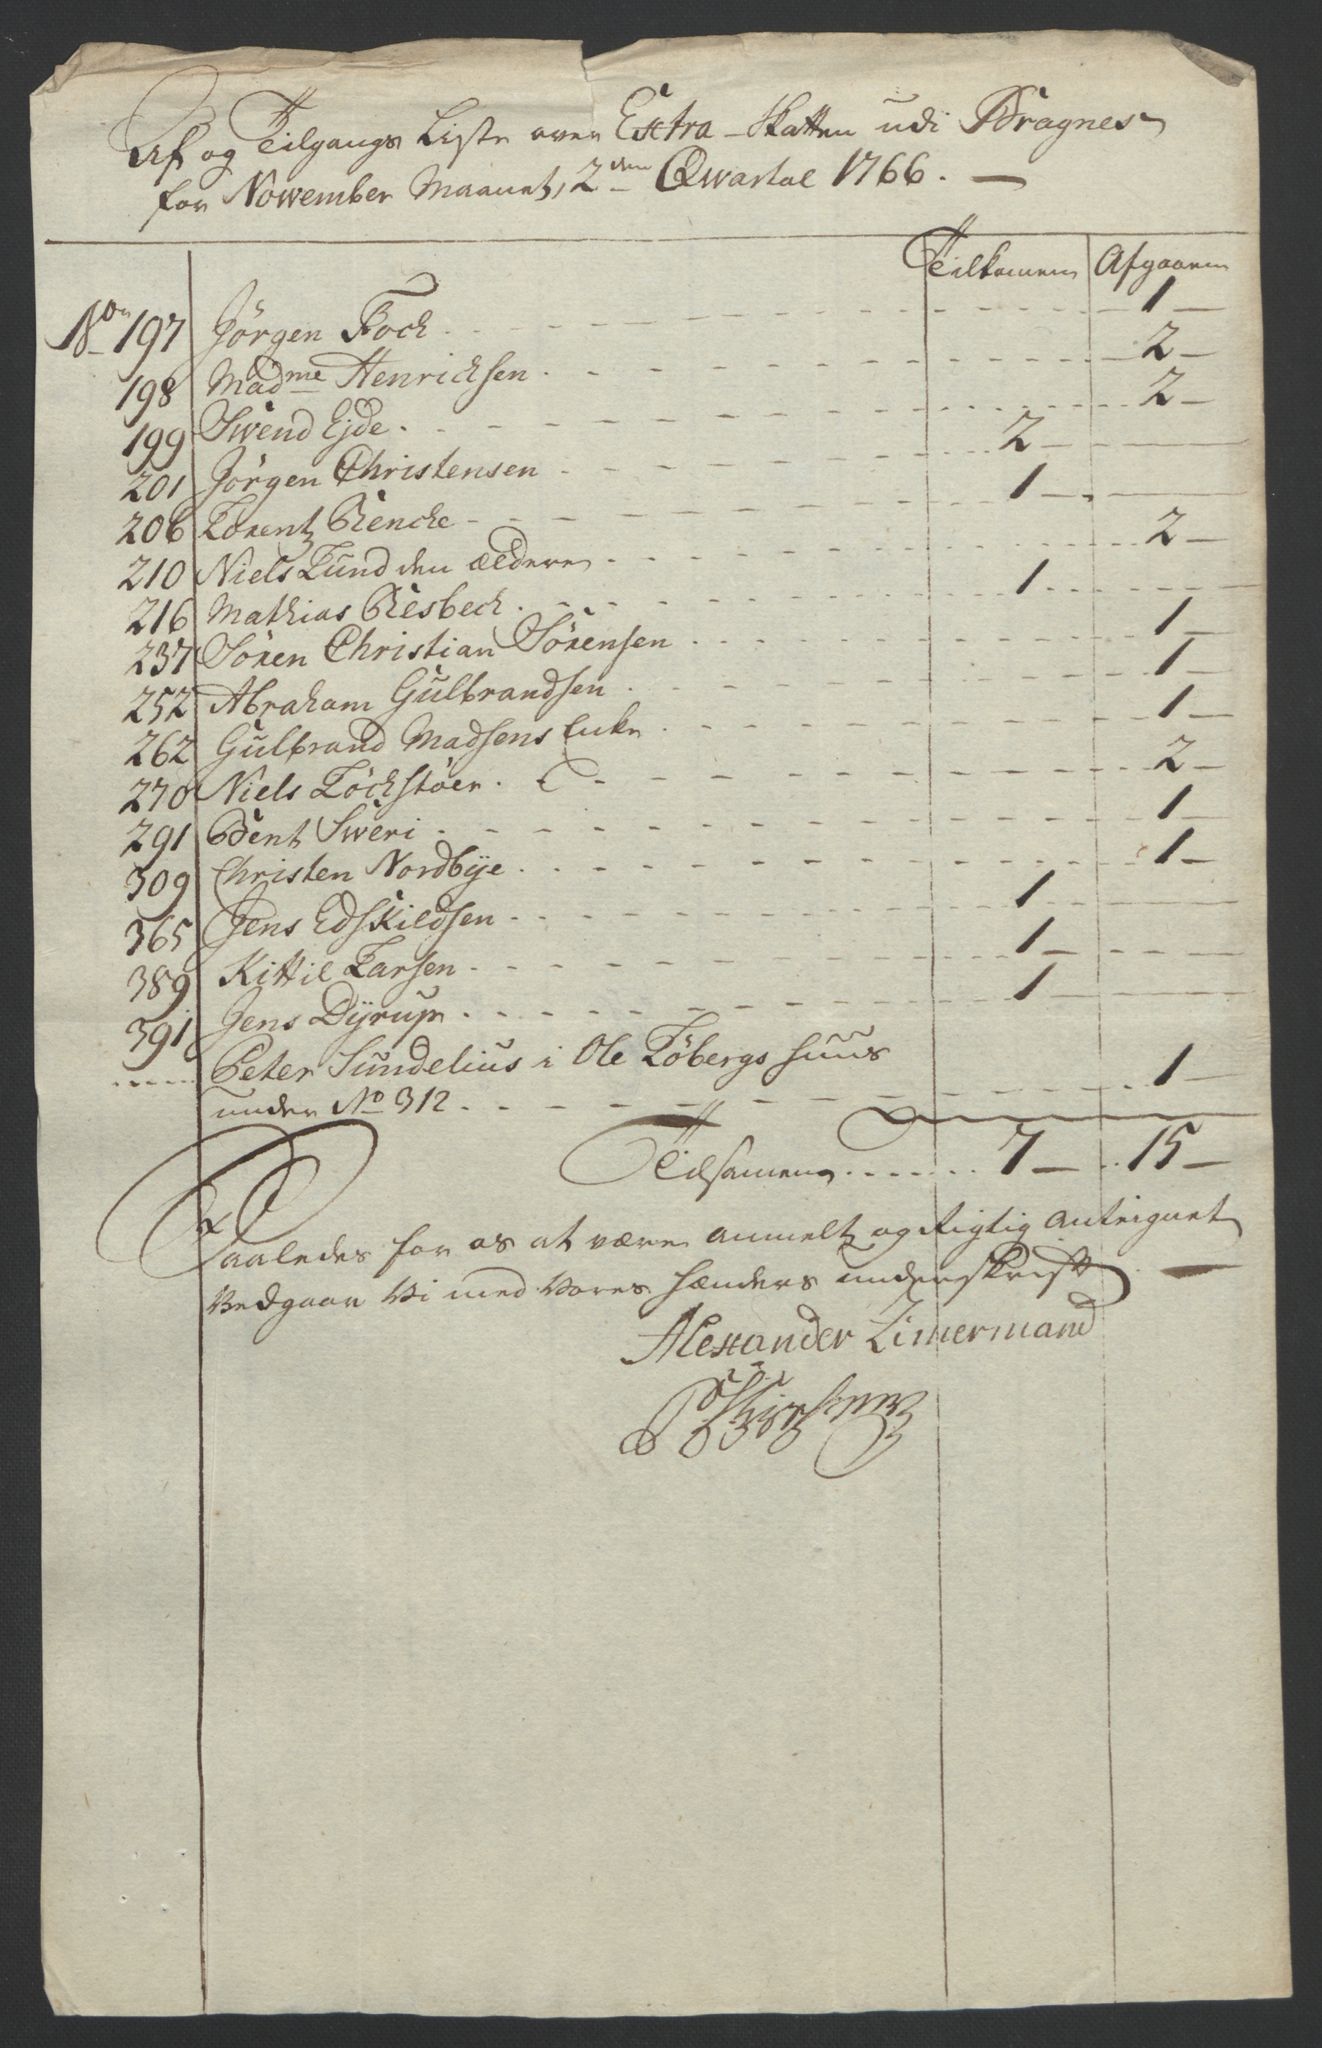 Af og Tilgangs Liste over Extra-Skatten udi Bragnes
for Nowember Maanet, 2den Qwartal 1766. —
Tilkomen Afgaaen
No 197 Jörgen Foch . - - - 1 —
198 Madme Henrichsen . - - - 2 —
199 Swend Ejde . - - - 2 —
201 Jörgen Christensen - - - 2 —
206 Lorentz Rencke - - - 1 —
210 Niels Lund den ældere . - - - 2 —
216 Mathias Resbech . - - - 1
237 Sören Christian Sörensen . - - - 1 —
252 Abraham Gulbrandsen . - - - 1 —
262 Gulbrand Madsens Enke . - - - 1 —
270 Niels Löchstöer . - - - 2 —
291 Bent Sweri . - - - 1 —
309 Christen Nordbÿe . - - - 1 —
365 Jens Edskildsen - - - 1 —
389 Kittil Larsen . - - - 1 —
391 Jens Dÿrup . - - - 1 —
Peter Sundelius i Ole Löbergs huus
under No 312 . - - - 1 —
Tilsamen . . . . 7 — 15 —
Saaledes for os at være anmelt og Rigtig antegnet
Vedgaar Vi med Vores hænders underskrift —
Alexander Zimermand